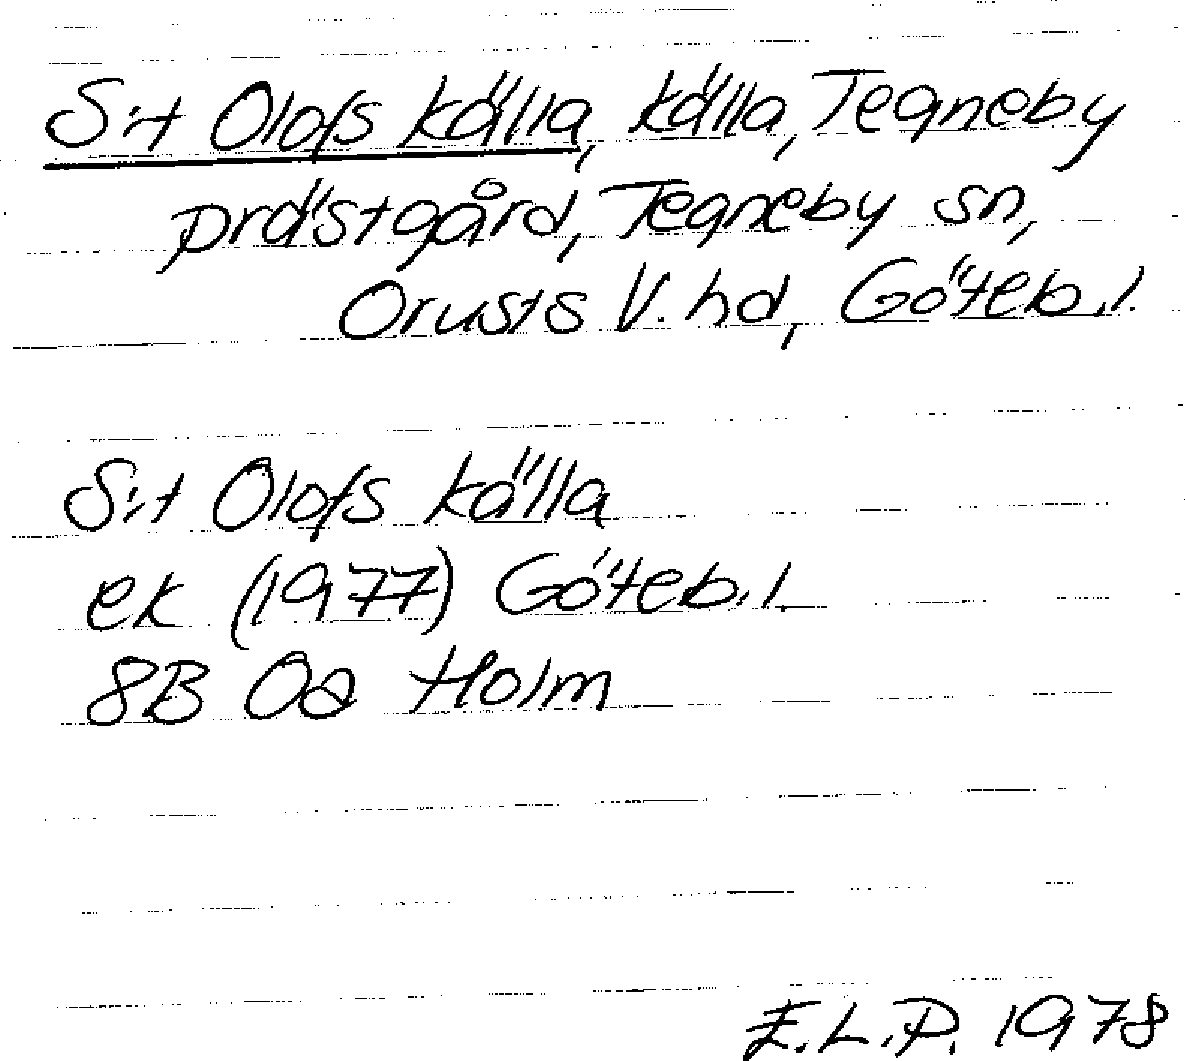 S:t Olofs källa, källa, Tegneby
prästgård, Tegneby sn,
Orusts V. hd, Göteb.l.
S:t Olofs källa
ek (1977) Göteb.l.
8B 0a Holm
E.L.P. 1978